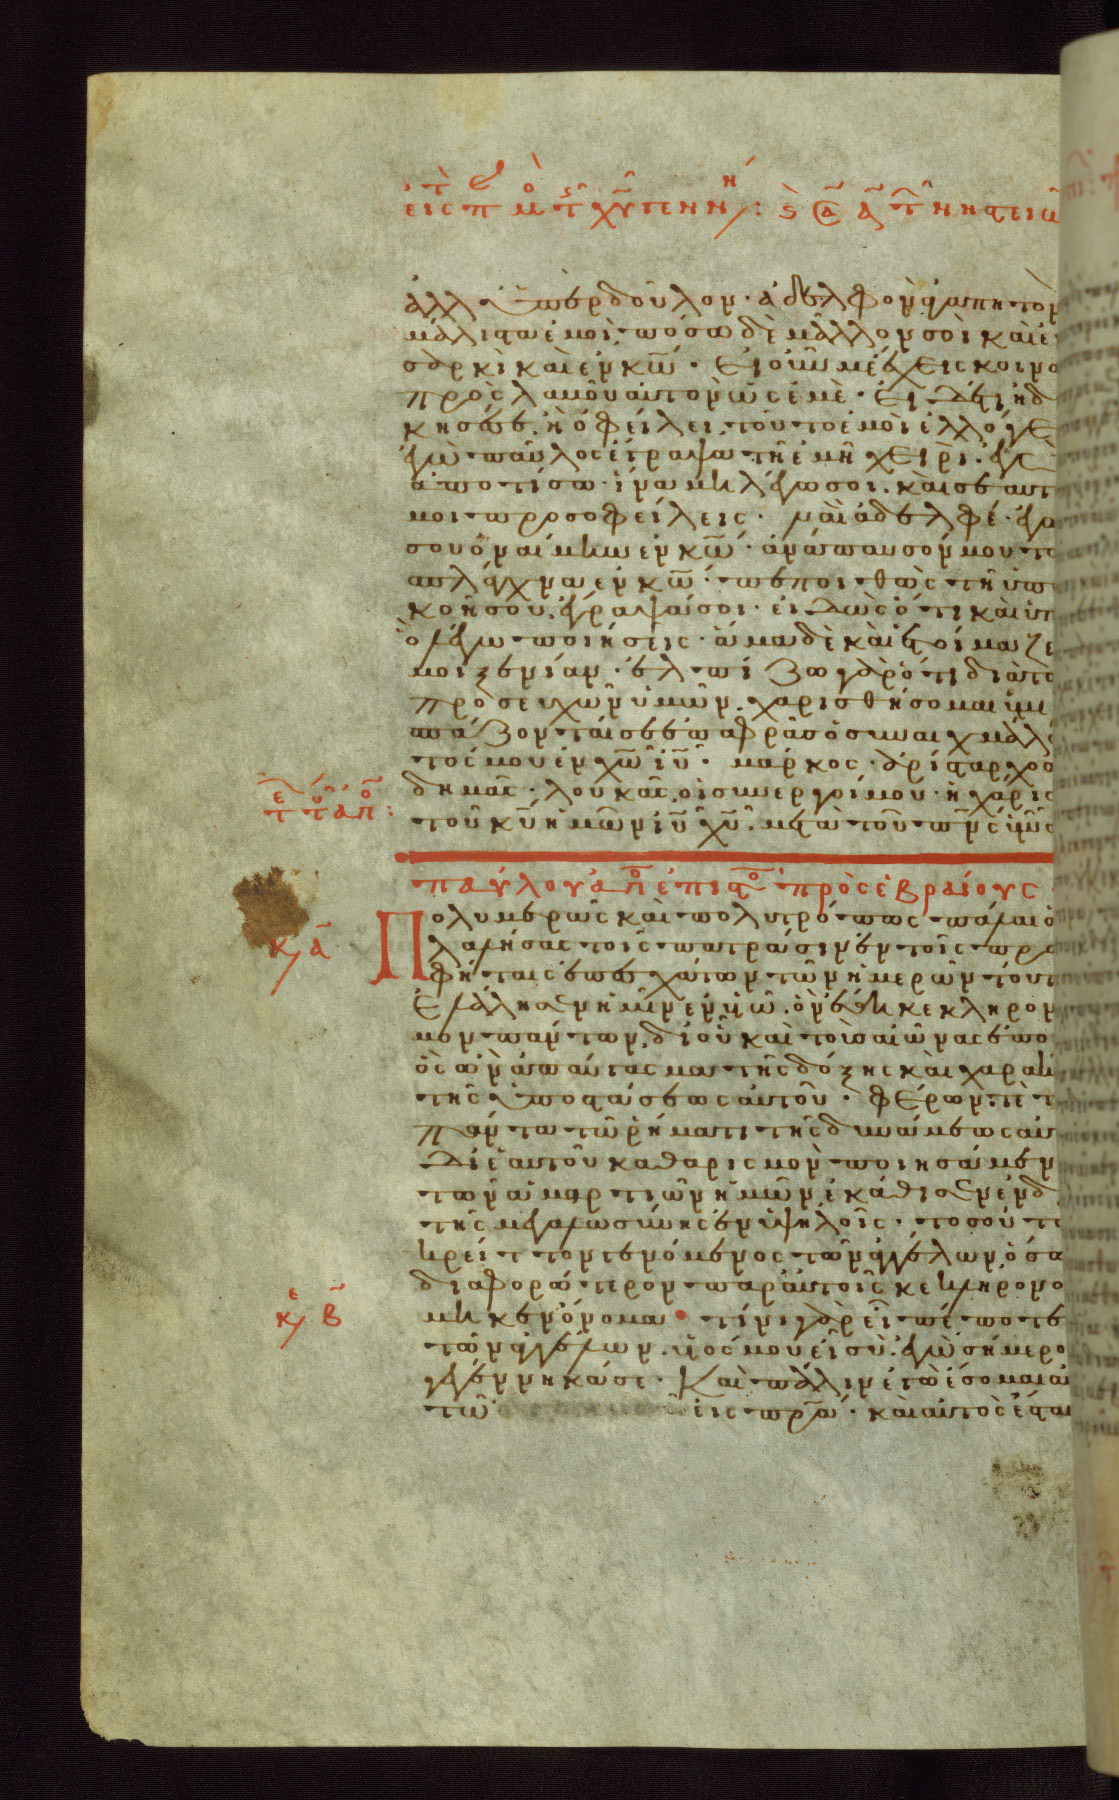 ἀλλ' ὑπὲρ δοῦλον· ἀδελφὸν ἀγαπητὸν
μάλιστα ἐμοί· πόσω δὲ μᾶλλον σοὶ καὶ ἐ
σαρκὶ καὶ ἐν κω̅· Εἰ οὖν με ἔχεις κοινω
προσλαβοῦ αὐτὸν ὡς ἐμέ· Εἰ δέ τι ἠδ
κησέ σε, ἢ ὀφείλει, τοῦτο ἐμοὶ ἐλλόγε
ἐγὼ παῦλος ἔγραψα τῆ ἐμῆ χειρί· ἐγὼ
ἀποτίσω· ἵνα μὴ λέγω σοι· καὶ σεαυτ
μοι προσοφείλεις· ναὶ ἀδελφέ· ἐγώ
σου ὀναίμην ἐν κω̅· ἀνάπαυσόν μου τὰ
σπλάγχνα ἐν κω̅· πεποιθὼς τῆ ὑπα
κοῆ σου, ἔγραψά σοι· εἰδὼς ὅτι καὶ ὑπ
ὃ λέγω ποιήσεις· ἅμα δὲ καὶ ἑτοίμαζε
μοι ξενίαν· ἐλπίζω γὰρ ὅτι διὰ τῶ
προσευχῶν ὑμῶν, χαρισθήσομαι ὑμ
ἀσπάζονταί σε ἐπαφρᾶς ὁ συναιχμάλω
τός μου ἐν χω̅ ιυ̅· μάρκος· ἀρίσταρχος
δημᾶς· λουκᾶς, οἱ συνεργοί μου· ἡ χάρις
τοῦ κυ̅ ἡμῶν ιυ̅ χυ̅· μετὰ τοῦ πν̅ς ὑμῶ
παύλου ἀπο ἐπιστο πρὸς ἑβραίους
κε α̅
Πολυμερῶς καὶ πολυτρόπως πάλαι ὁ
λαλήσας τοῖς πατράσιν ἐν τοῖς προ
φήταις ἐπ' ἐσχάτων τῶν ἡμερῶν τούτ
ἐλάλησεν ἡμῖν ἐν υἱῶ, ὃν ἔθηκε κληρον
μον πάντων, δι' οὗ καὶ τοὺς αἰῶνας ἐπο
ὃς ὢν ἀπαύγασμα τῆς δόξης καὶ χαρακ
τῆς ὑποστάσεως αὐτοῦ· φέρων τε τ
πάντα τῶ ῥήματι τῆς δυνάμεως αὐτ
δι' ἑαυτοῦ καθαρισμὸν ποιησάμεν
τῶν ἁμαρτιῶν ἡμῶν, ἐκάθισεν ἐν δ
τῆς μεγαλωσύνης ἐν ὑψηλοῖς· τοσούτ
κρείττων γενόμενος τῶν ἀγγέλων ὅσω
διαφορώτερον παρ' αὐτοῖς κεκληρονο
κε β̅
μηκεν ὄνομα· τίνι γὰρ εἶπέ ποτε
τῶν ἀγγέλων. υἱός μου εἶ σύ, ἐγὼ σήμερο
γεγέννηκά σε· Καὶ πάλιν ἐγὼ ἔσομαι αὐ
τῶ εἰς πρ̅α· καὶ αὐτὸς ἔσται